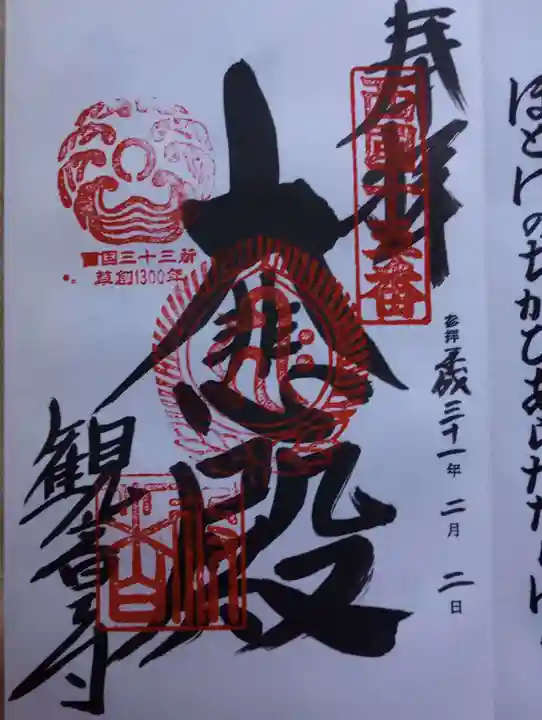 ほとけのちかひあらたなり
奉拝
西国十五番
平成三十一年二月二日
大悲殿
国三十三所
草創1300年
観音寺